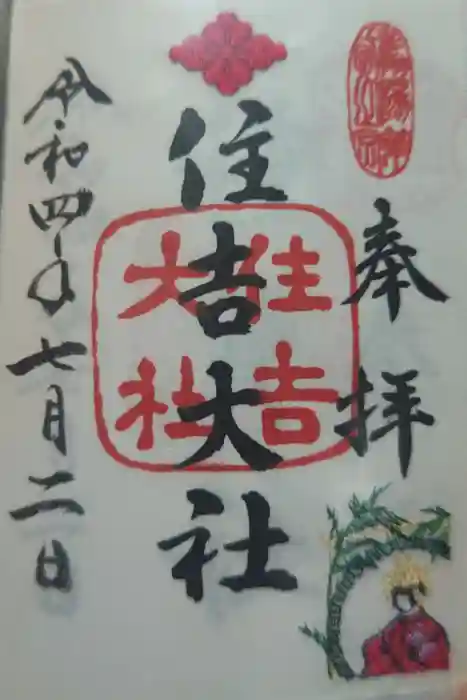 奉拝
住吉大社
住吉大社
令和四年七月二日